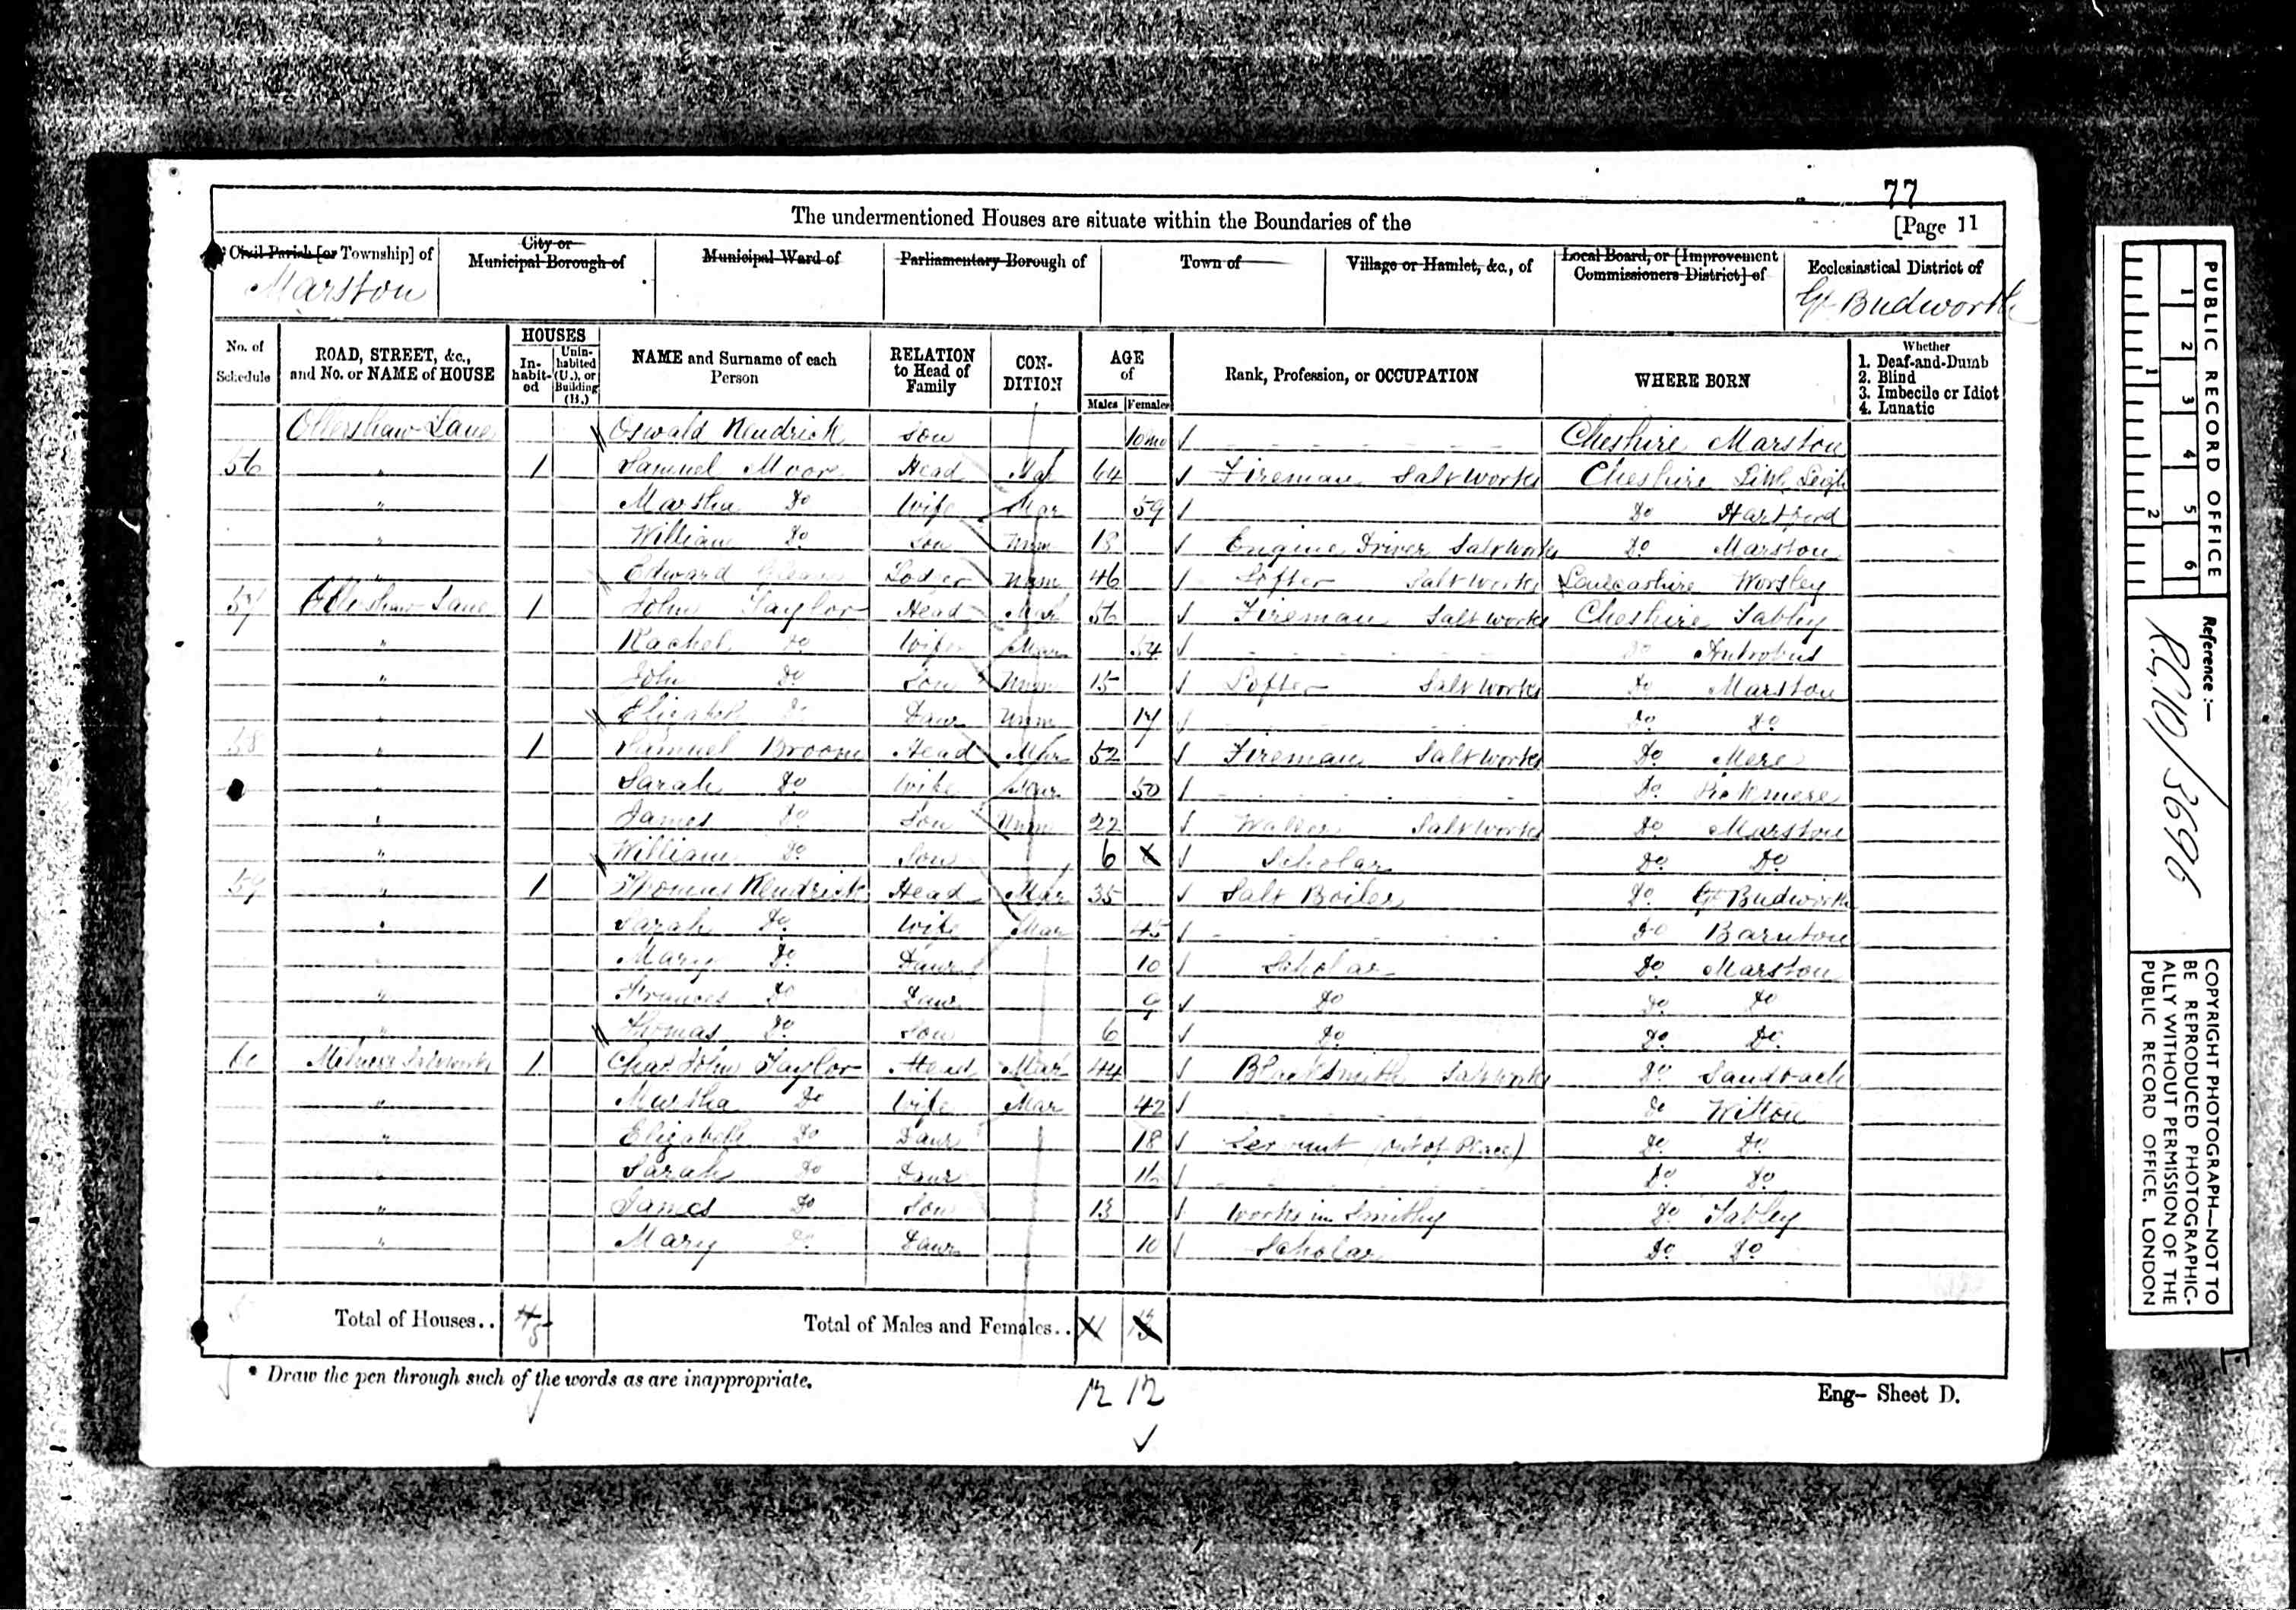 77
The undermentioned Houses are situate within the Boundaries of the
[Page 11
Civil Parish [or Township] of
City or Municipal Borough of
Municipal Ward of
Parliamentary Borough of
Town of
Village or Hamlet, &c., of
Local Board, or [Improvement Commissioners District] of
Ecclesiastical District of
Marston
Gt Budworth
No. of Schedule
ROAD, STREET, &c., and No. or NAME of HOUSE
HOUSES
In-habit-ed
Unin-habited (U.), or Building (B.)
NAME and Surname of each Person
RELATION to Head of Family
CON-DITION
AGE of
Males
Females
Rank, Profession, or OCCUPATION
WHERE BORN
Whether
1. Deaf-and-Dumb
2. Blind
3. Imbecile or Idiot
4. Lunatic
Ollershaw Lane Oswald Kendrick Son 10mo Cheshire Marston
56 " 1 Samuel Moore Head Mar 64 Fireman Salt Works Cheshire Little Leigh
" Martha Do Wife Mar 59 Do Hartford
" William Do Son Unm 18 Engine Driver Salt Works Do Marston
" Edward Lodger Unm 46 Lofter Salt Works Lancashire Worsley
57 Ollershaw Lane 1 John Taylor Head Mar 56 Fireman Salt Works Cheshire Tabley
" Rachel Do Wife Mar 54 Do Antrobus
" John Do Son Unm 15 Lofter Salt Works Do Marston
" Elizabeth Do Daur Unm 17 Do Do
58 " 1 Samuel Broom Head Mar 52 Fireman Salt Works Do Mere
" Sarah Do Wife Mar 50 Do Pickmere
" James Do Son Unm 22 Waller Salt Works Do Marston
" William Do Son 6 Scholar Do Do
59 " 1 Thomas Kendrick Head Mar 35 Salt Boiler Do Gt Budworth
" Sarah Do Wife Mar 45 Do Barnton
" Mary Do Daur 10 Scholar Do Marston
" Frances Do Daur 9 Do Do Do
" Thomas Do Son 6 Do Do Do
60 Salt Works 1 Chas John Taylor Head Mar 44 Blacksmith Salt Works Do Sandbach
" Martha Do Wife Mar 42 Do Witton
" Elizabeth Do Daur 18 Servant (out of Place) Do Do
" Sarah Do Daur 16 Do Do
" James Do Son 13 Works in Smithy Do Tabley
" Mary Do Daur 10 Scholar Do Do
Total of Houses.. 4 5
Total of Males and Females.. 11 13
* Draw the pen through such of the words as are inappropriate.
12 12
Eng- Sheet D.
PUBLIC RECORD OFFICE
1 2 3 4 5 6
1 2
Reference :—
R.G.10/3696
COPYRIGHT PHOTOGRAPH—NOT TO
BE REPRODUCED PHOTOGRAPHIC-
ALLY WITHOUT PERMISSION OF THE
PUBLIC RECORD OFFICE, LONDON